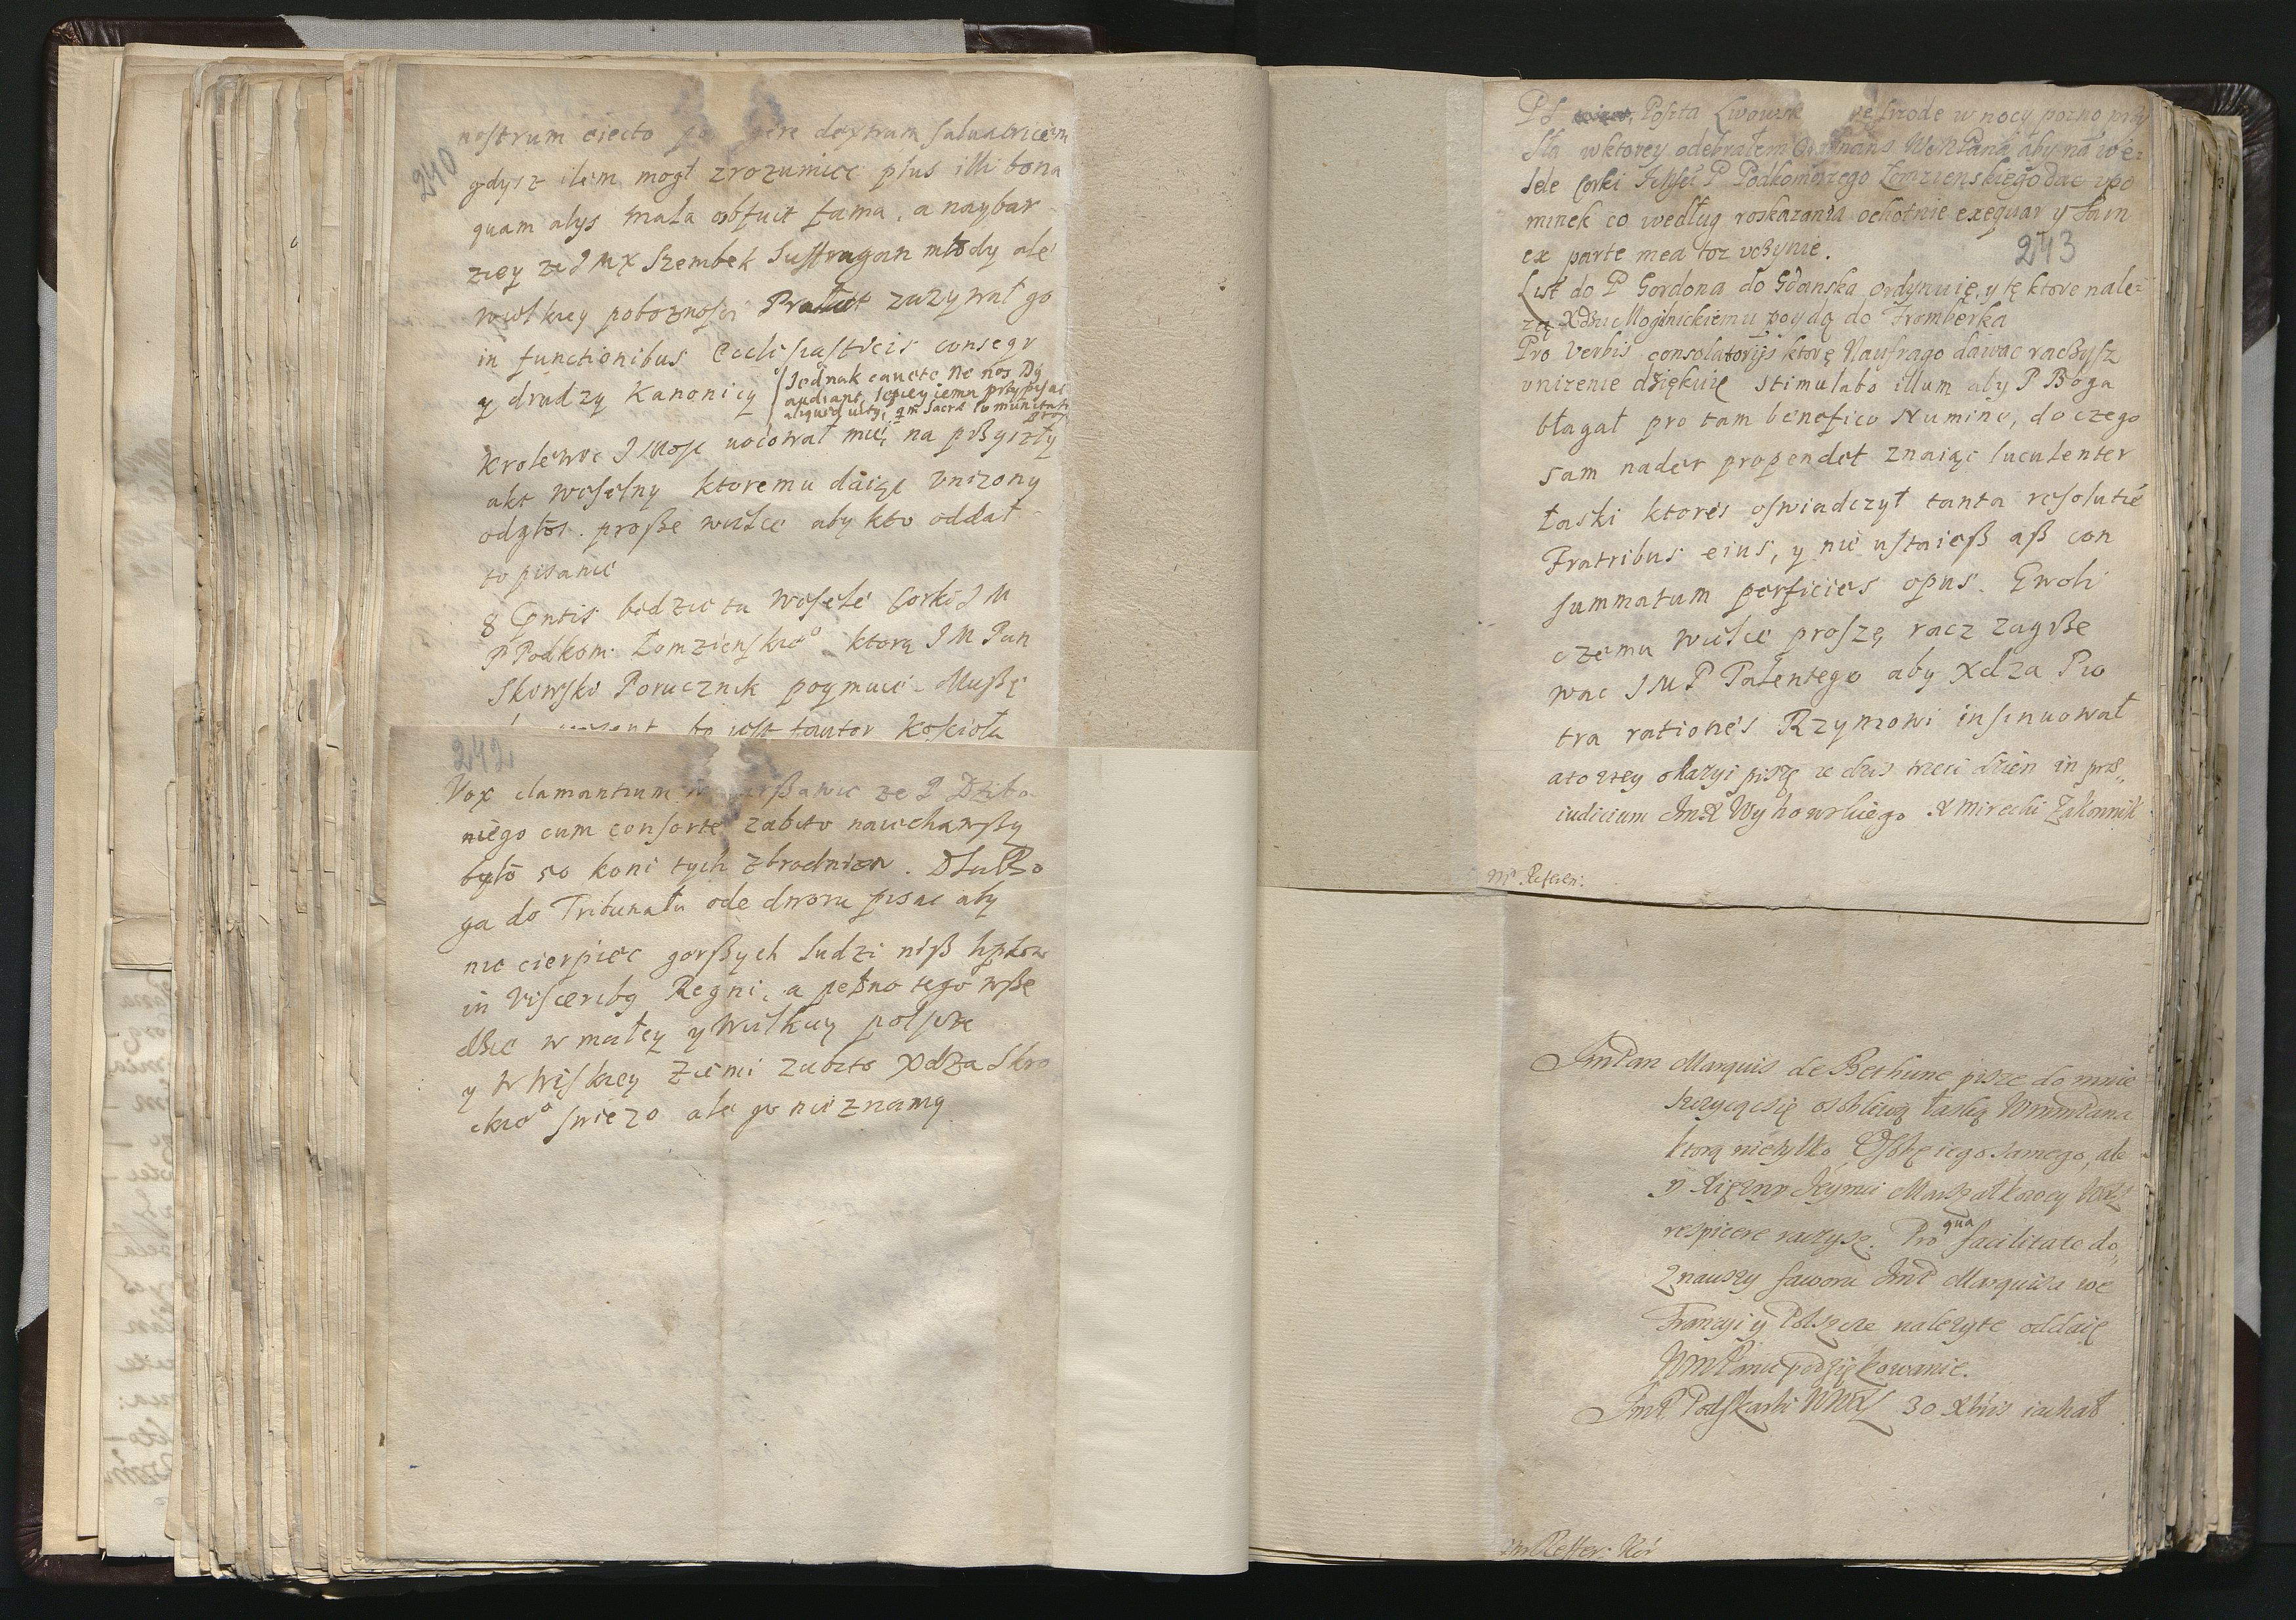 240
nostrum eiecto dextram salvatricem
gdysz ilem mogł zrozumiec plus illi bona
quam alys mala obfuit fama, a naybar
ziey ze J M X Szembek Suffragan młody ale
wielkiey poboznosci Prałat zazywał go
in functionibus Ecclesiasticis
y drudzy Kanonicy
Jednak caute ne nos
audiant, lepiey iemu przypisac
aliquid
Krolewic J Mosc mię na przyszły
akt weselny ktoremu daięć vnizony
odgłos. prosze wielce aby kto oddał
to pisanie
8 będzie tu wesele Corki J M
P Podkom. Łomzienskie° ktorą J M Pan
Skowski Porucznik poymuie. Muszę
to iest fautor Koscioła
242
Vox clamantium ze P
niego cum consorte zabito naiechawszy
było 50 koni tych zbrodniow.
ga do Tribunału ode dworu pisac aby
nie cierpiec gorszych ludzi nisz
in Visceribq Regni, a pełno tego wszę
dzie w małey y wielkiey polscze
y w Ziemi zabito Xdza Skro
ckie° swiezo ale go nie znamy
PS Poszta Lwowsk we srzode w nocy pozno przy
szła w ktorey odebrałem Ordinans WMPana aby na we=
sele Corki Jchmsci P Podkomorzego Łomzienskiego dac vpo
minek co według roskazania ochotnie exequar y sam
ex parte mea toz vczynie.
243
List do P Gordona do Gdanska ordynuię, y tę ktore nale=
zą Xdzu Mogilnickiemu poydą do Fromberka
Pro verbis consolatorijs ktorę Naufrago dawac raczysz
vnizenie dziękuię stimulabo illum aby P Boga
błagał pro tam benefico Numine, do czego
sam nader propendet znaiąc luculenter
łaski ktores oswiadczył tanta resolutie
Fratribus eius, y nie ustaiesz asz con
summatum perficies opus. Gwoli
czemu wielce proszę racz zagrze
wac J M P Patentego aby Xdza Pio
tra rationes Rzymowi insinuował
ato z tey okazyi piszę ze dzis trzeci dzien in prae„
iudicium Jm X Wyhowskiego X Mirecki Zakonnik
mP. Referen:
JmPan Marquis de Bethune pisze do mnie
szczycącsię osobliwą łaską WmmPana
ktorą nietylko Osobę iego samego, ale
y Xięzny Jeymci Marszałkowey WXL
respicere raczysz. Pro qua facilitate do„
znawszy faworu JmP Marquisa we
Francyi y Polszcze nalezyte oddaię
WmPanu podziękowanie.
JmP Podskarbi WXL 30 Xbris iachał
JmReffer: Kor